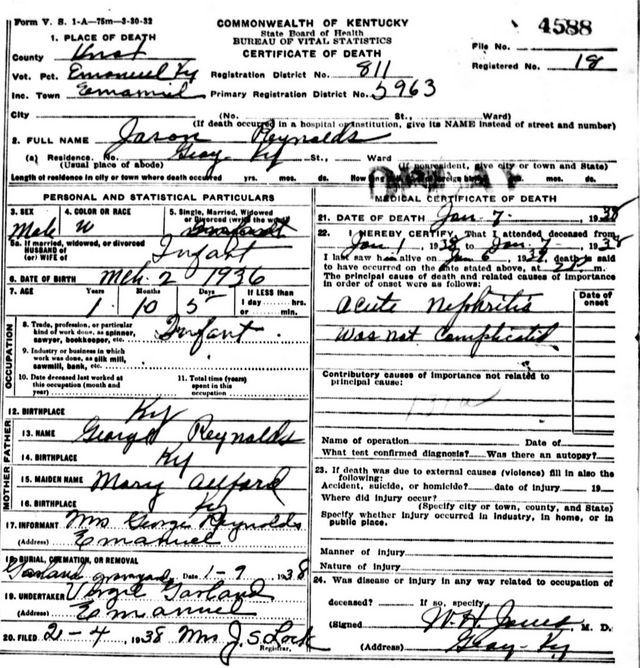 Form V. S. 1-A—75m—3-30-32
COMMONWEALTH OF KENTUCKY
State Board of Health
BUREAU OF VITAL STATISTICS
CERTIFICATE OF DEATH
4588
File No.
Registered No. 18
1. PLACE OF DEATH
County Knox
Vot. Pct. Emanuel Ky Registration District No. 811
Inc. Town Emanuel Primary Registration District No. 5963
City (No. St., Ward)
(If death occurred in a hospital or institution, give its NAME instead of street and number)
2. FULL NAME Jason Reynolds
(a) Residence. No. Gray Ky St., Ward
(Usual place of abode) (If nonresident, give city or town and State)
Length of residence in city or town where death occurred yrs. mos. ds. How long yrs. mos. ds.
PERSONAL AND STATISTICAL PARTICULARS
3. SEX 4. COLOR OR RACE 5. Single, Married, Widowed
or Divorced (write the word)
Male W
5a. If married, widowed, or divorced
HUSBAND of
(or) WIFE of Infant
6. DATE OF BIRTH Mch. 2 1936
7. AGE Years Months Days If LESS than
1 day hrs.
or min.
1 10 5
OCCUPATION
8. Trade, profession, or particular
kind of work done, as spinner,
sawyer, bookkeeper, etc. Infant
9. Industry or business in which
work was done, as silk mill,
sawmill, bank, etc.
10. Date deceased last worked at
this occupation (month and
year)
11. Total time (years)
spent in this
occupation
12. BIRTHPLACE Ky
FATHER
13. NAME George Reynolds
14. BIRTHPLACE Ky
MOTHER
15. MAIDEN NAME Mary Alford
16. BIRTHPLACE Ky
17. INFORMANT Mrs George Reynolds
(Address) Emanuel
18. BURIAL, CREMATION, OR REMOVAL
Garland graveyard Date 1-9 1938
19. UNDERTAKER Virgil Garland
(Address) Emanuel
20. FILED 2-4, 1938 Mrs J. S. Lock
Registrar.
MEDICAL CERTIFICATE OF DEATH
21. DATE OF DEATH Jan. 7. 1938
22. I HEREBY CERTIFY, That I attended deceased from
Jan 1, 1938 to Jan 7, 1938
I last saw him alive on Jan 6, 1938, death is said
to have occurred on the date stated above, at m.
The principal cause of death and related causes of importance
in order of onset were as follows:
Date of
onset
Acute Nephritis
Was not Complicated
Contributory causes of importance not related to
principal cause:
Name of operation Date of
What test confirmed diagnosis? Was there an autopsy?
23. If death was due to external causes (violence) fill in also the
following:
Accident, suicide, or homicide? date of injury 19
Where did injury occur?
(Specify city or town, county, and State)
Specify whether injury occurred in industry, in home, or in
public place.
Manner of injury
Nature of injury
24. Was disease or injury in any way related to occupation of
deceased? If so, specify
(Signed W. H. Jones, M. D.
(Address) Gray Ky